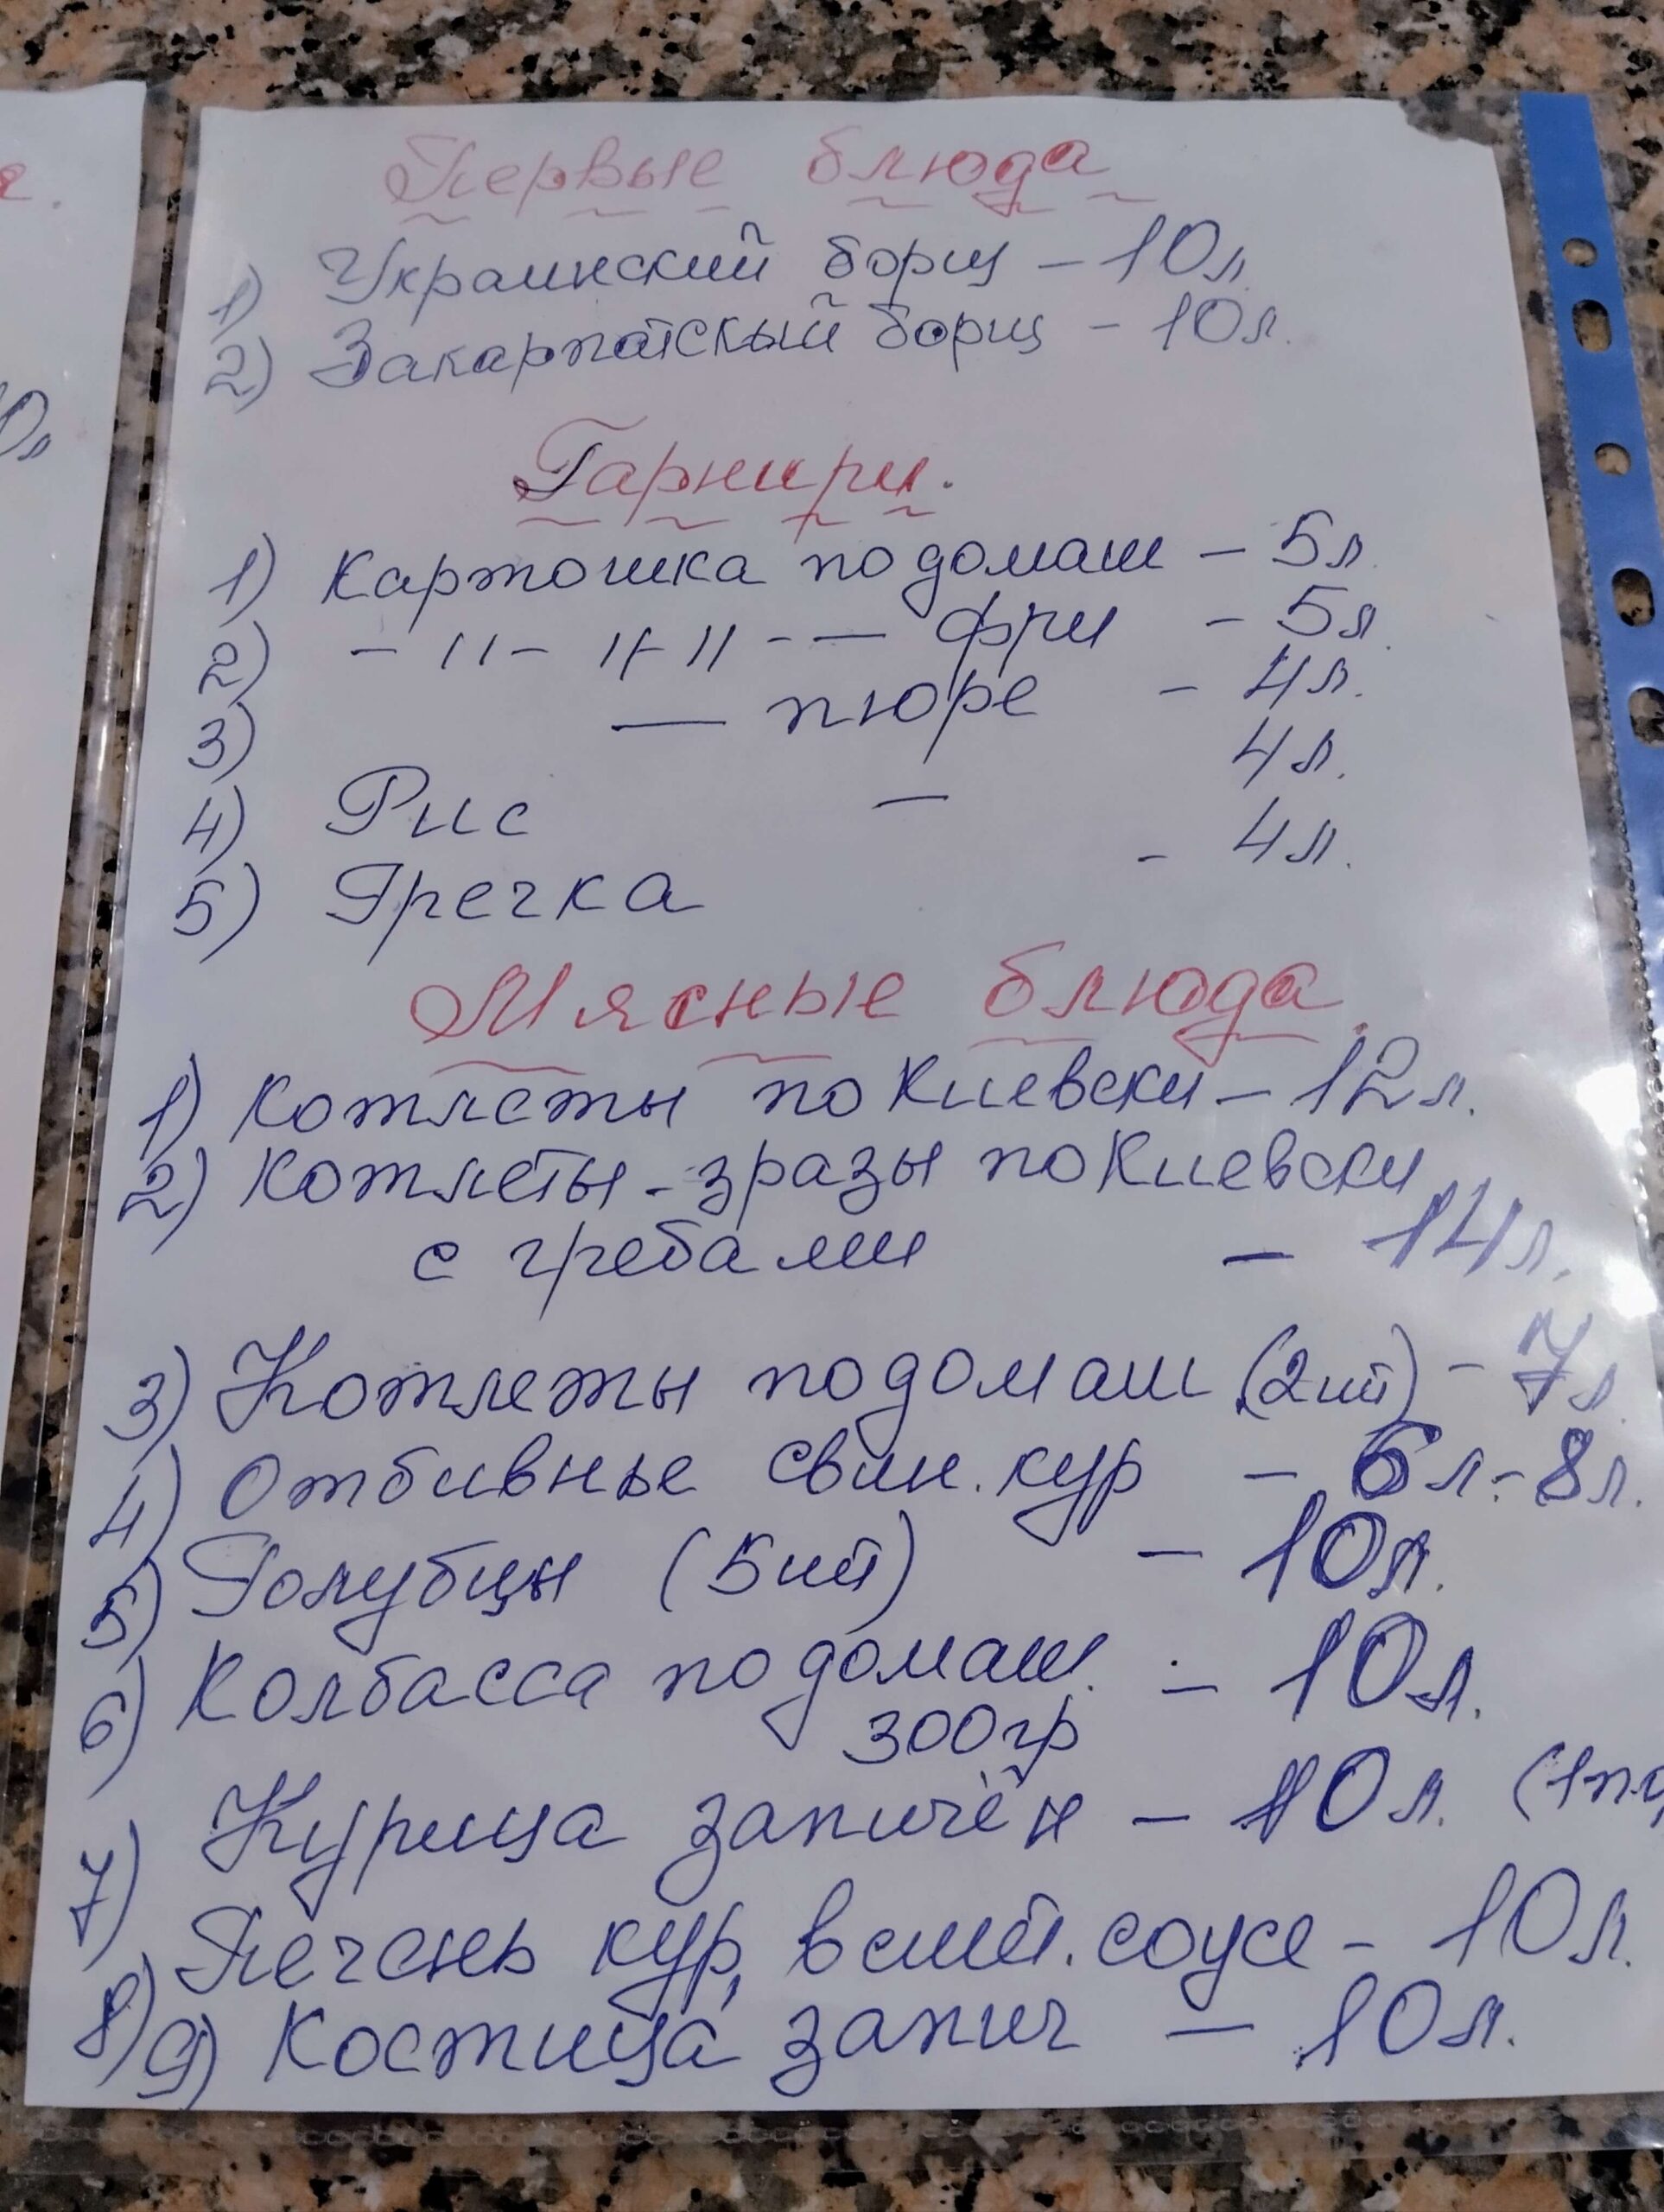 Первые блюда
1) Украинский борщ – 10л.
2) Закарпатскый борщ – 10л.
Гарнири.
1) Картошка по домаш – 5л.
2) – 〃 – 〃 〃 - — фри – 5л.
3) — пюре – 4л.
4) Рис — 4л.
5) Гречка – 4л.
Мясные блюда.
1) Котлеты по Киевски – 12л.
2) Котлеты - зразы по Киевски
с гребами – 14л.
3) Котлеты по домаш (2шт) – 7л.
4) Отбивные свин. кур – 6л. – 8л.
5) Голубцы (5шт) – 10л.
6) Колбасса по домаш. – 10л.
300гр
7) Курица запичён – 10л. (1по
8) Печень кур, в смет. соусе – 10л.
9) Костица запич — 10л.